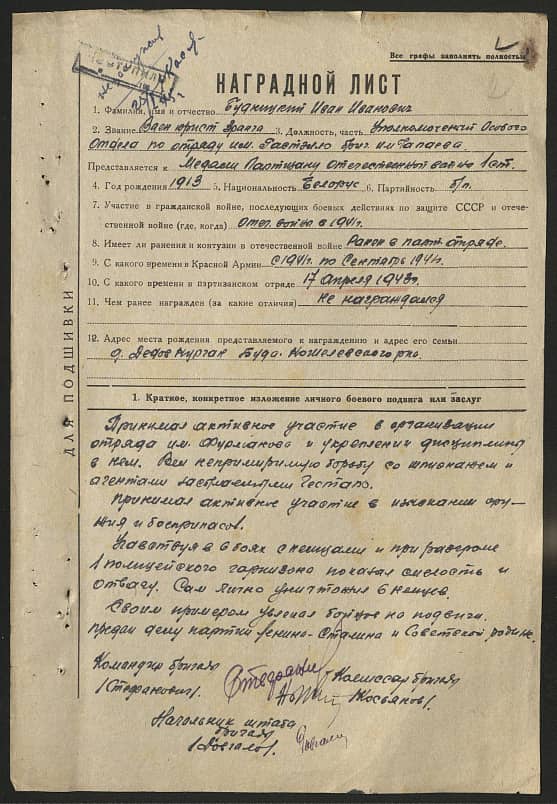 Все графы заполнять полностью
ПОСТУПИЛ
НАГРАДНОЙ ЛИСТ
1. Фамилия, имя и отчество Гудницкий Иван Иванович
2. Звание Воен юрист 3 ранга 3. Должность, часть Уполномоченный Особого
Отдела по отряду им. бриг. им Чапаева
Представляется к Медали Партизану Отечественной войны 1 ст.
4. Год рождения 1913 5. Национальность Белорус 6. Партийность б/п.
7. Участие в гражданской войне, последующих боевых действиях по защите СССР и отече-
ственной войне (где, когда) Отеч. война в 1941г.
8. Имеет ли ранения и контузии в отечественной войне Ранен в парт. отряде.
9. С какого времени в Красной Армии с 1941г по Сентябрь 1941г.
10. С какого времени в партизанском отряде 17 апреля 1943г.
11. Чем ранее награжден (за какие отличия) Не награждался
12. Адрес места рождения представляемого к награждению и адрес его семьи
д. Дедов Курган Буда-Кошелевского р-на
ДЛЯ ПОДШИВКИ
1. Краткое, конкретное изложение личного боевого подвига или заслуг
Принимал активное участие в организации
отряда им. Фурманова и укреплении дисциплины
в нем. Вел непримиримую борьбу со шпионажем и
агентами засылаемыми Гестапо.
Принимал активное участие в изыскании ору-
жия и боеприпасов.
Участвуя в 6 боях с немцами и при разгроме
1 полицейского гарнизона показал смелость и
отвагу. Сам лично уничтожил 6 немцев.
Своим примером увлекал бойцов на подвиги.
Предан делу партии Ленина-Сталина и Советской родине.
Командир бригады
/Стефанович/.
Комиссар бригады
/Косьянов/.
Начальник штаба
бригады
/Довгало/.